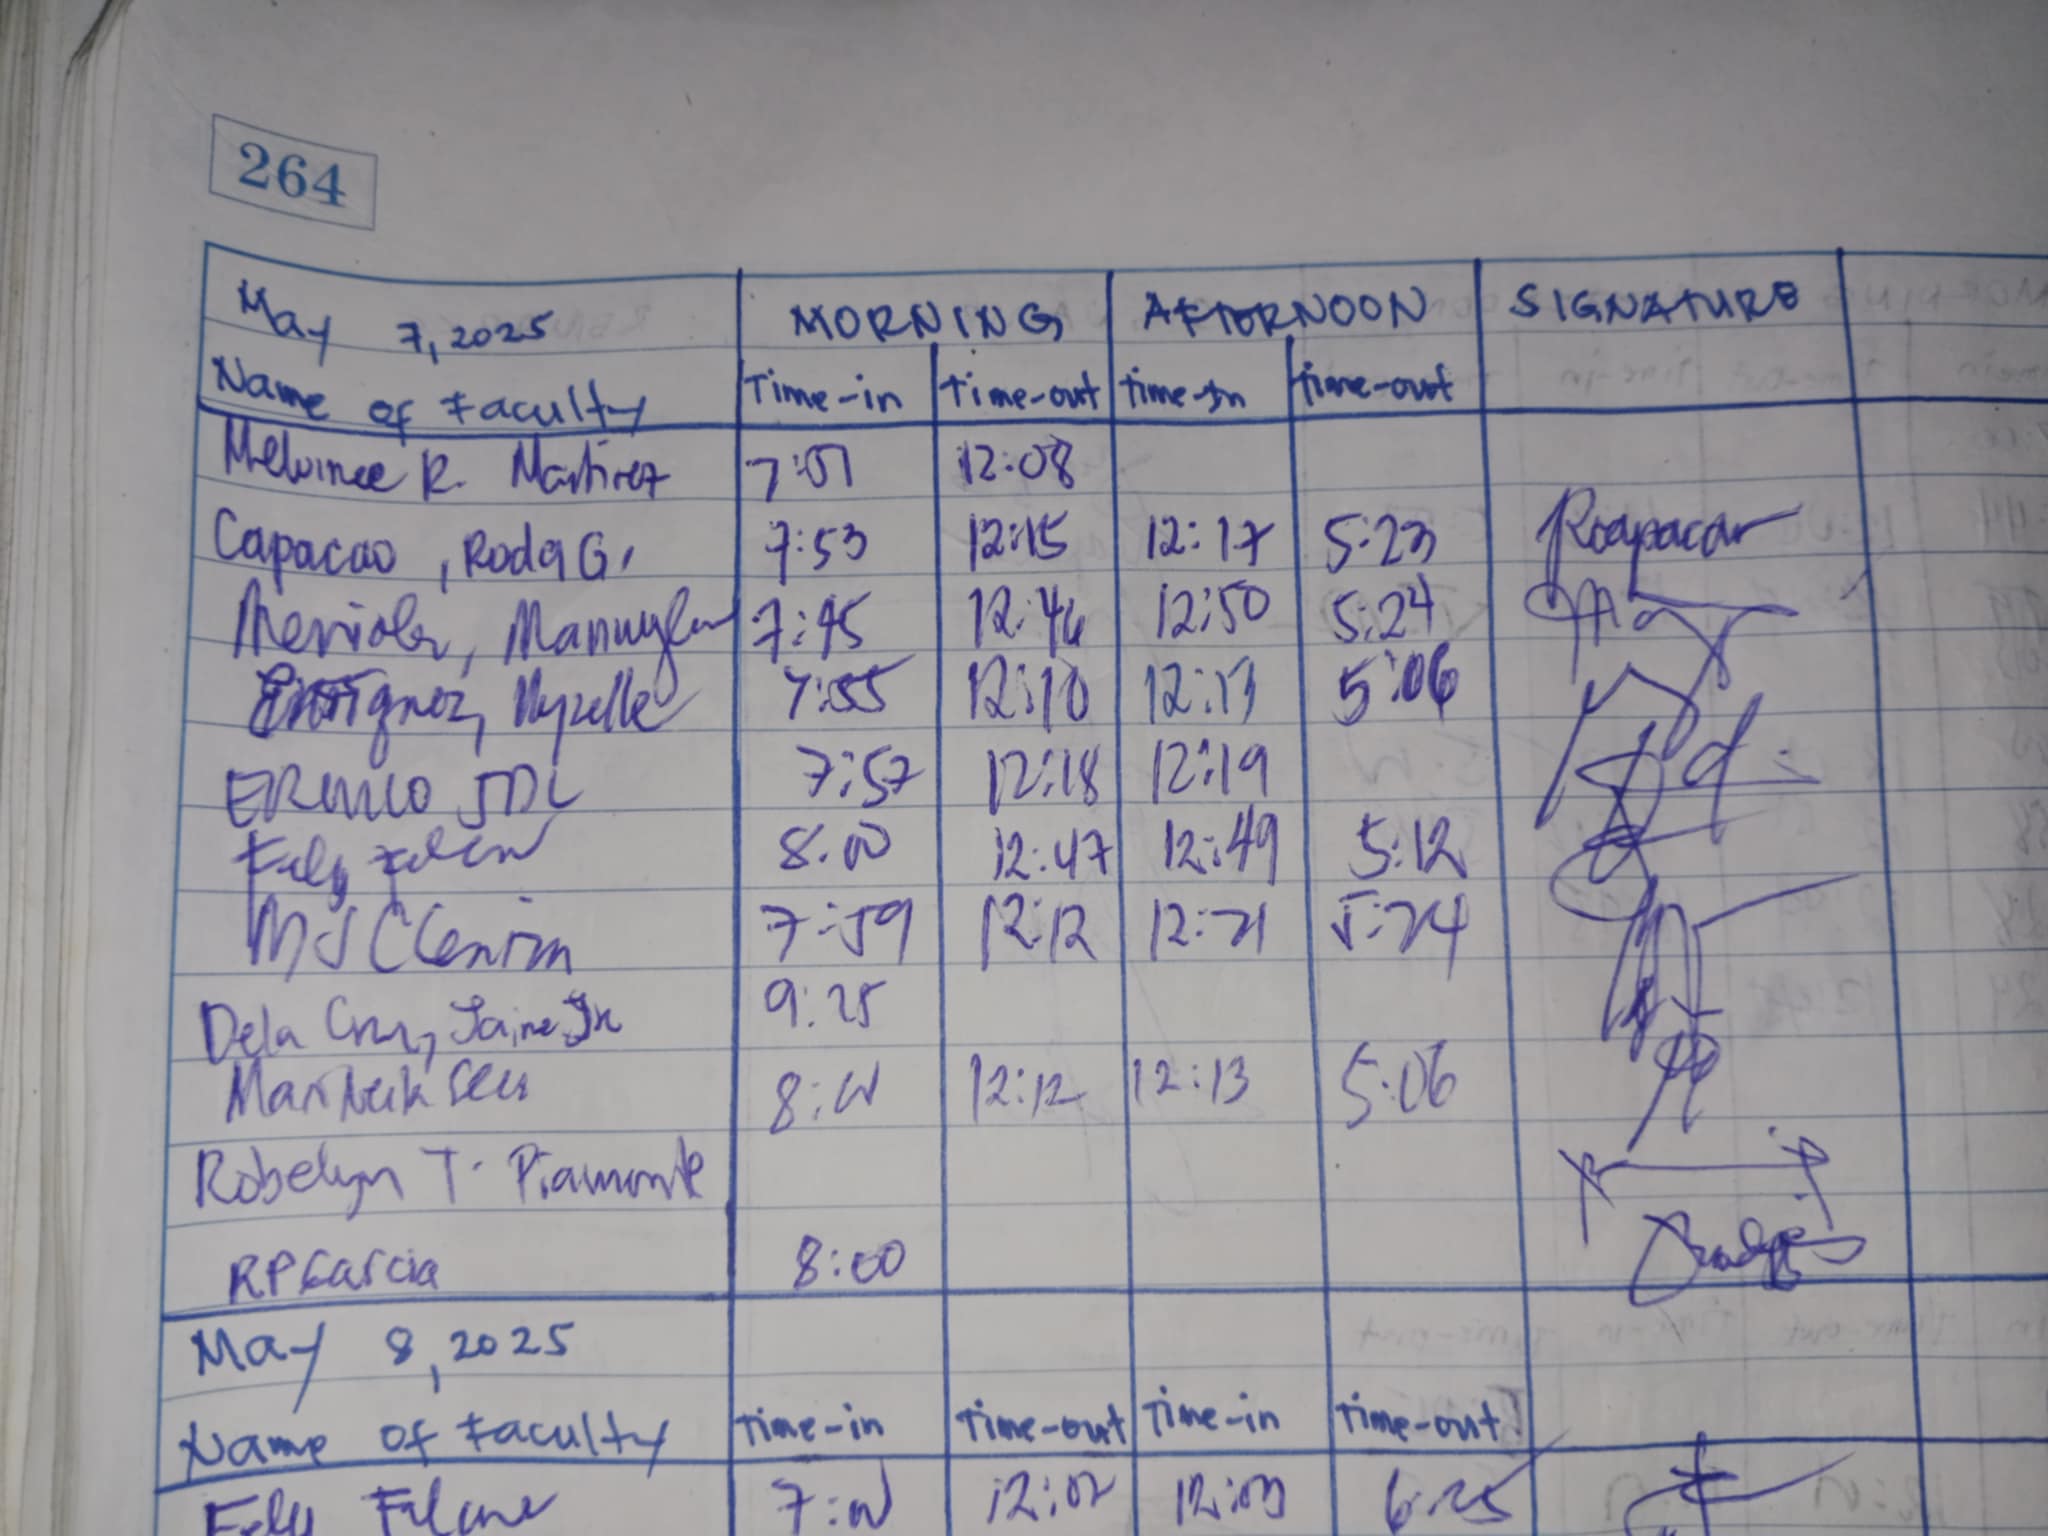 264
May 7, 2025 MORNING AFTERNOON SIGNATURE
Name of Faculty Time-in Time-out Time-In Time-out
Melvinee R. Martinez 7:01 12:08
Capacao, Roda G. 7:53 12:15 12:17 5:23 Rcapacao
7:45 12:46 12:50 5:24
Enriquez, Myzelle 7:55 12:10 12:13 5:06
JDL 7:57 12:18 12:19
Fely 8:00 12:47 12:49 5:12
MJC 7:59 12:12 12:21 5:24
Dela Cruz, Jaime Jr. 9:25
8:00 12:12 12:13 5:06
Robelyn T. Piamonte
RPGarcia 8:00
May 8, 2025
Name of Faculty Time-in Time-out Time-in Time-out
Fely 7:00 12:02 12:03 6:25